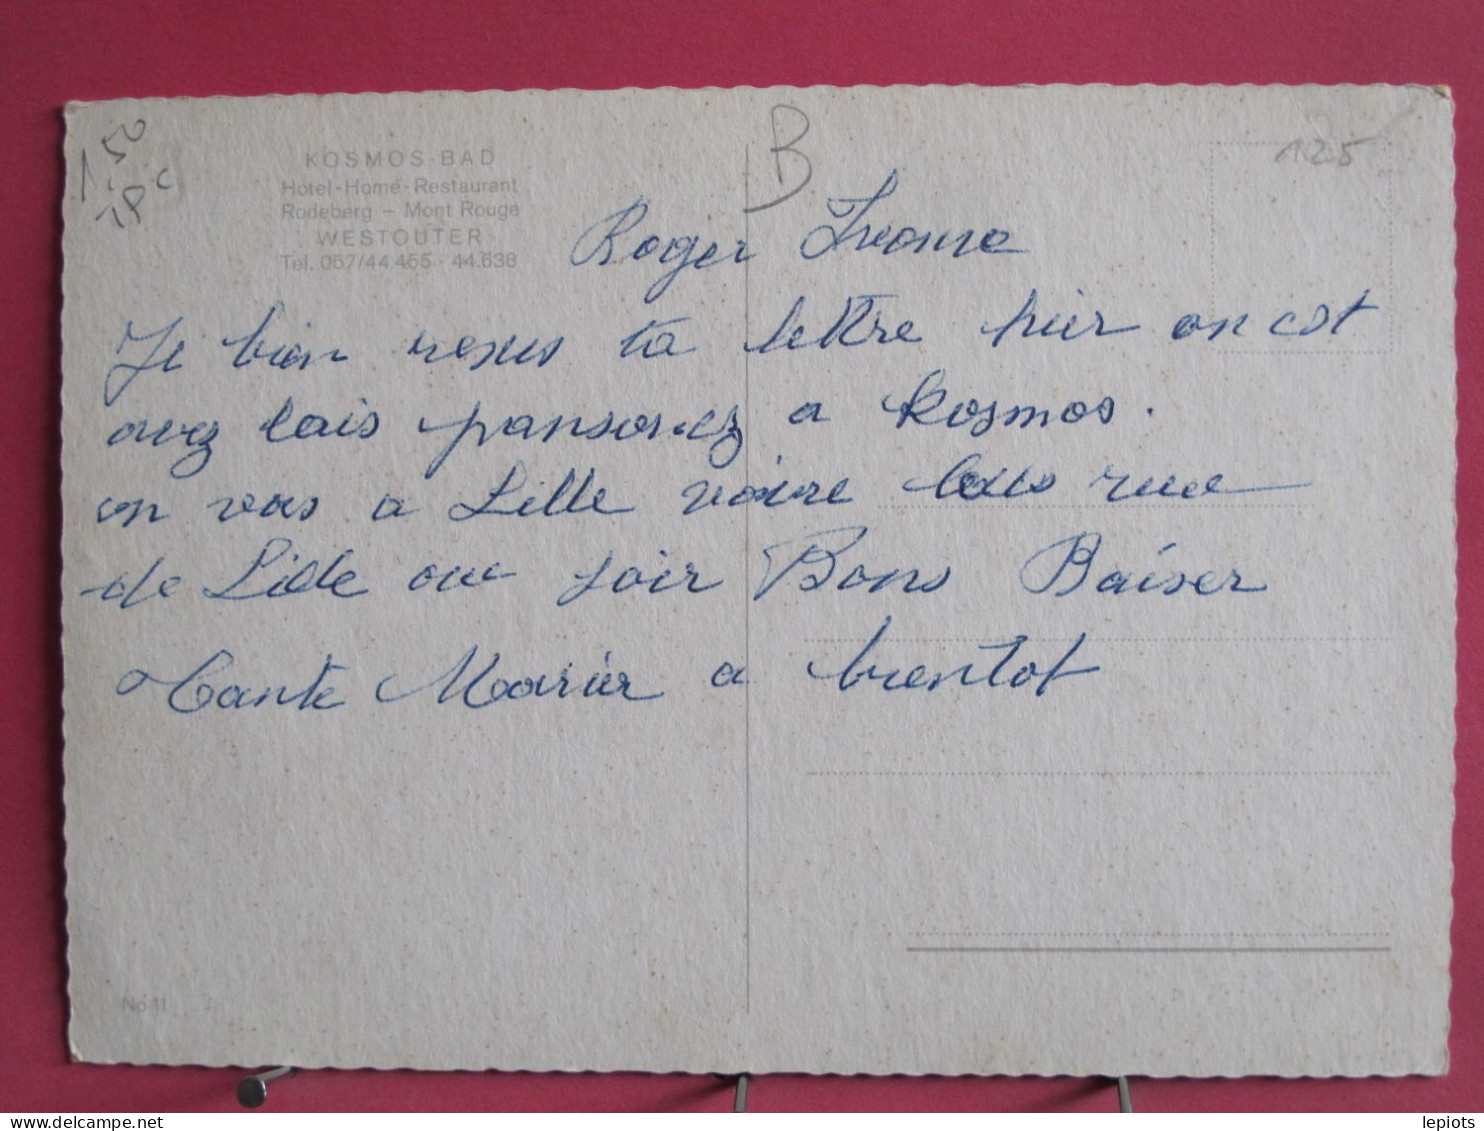 1.50
B
125
KOSMOS-BAD
Hotel-Home-Restaurant
Rodeberg – Mont Rouge
WESTOUTER
Tel. 057/44.455 - 44.638
Roger
Je bien resus ta lettre hier on est
avez lais pansonez a Kosmos.
on vas a Lille voire rue
de Lille au soir Bons Baiser
Tante a bientot
No 11
lepiots